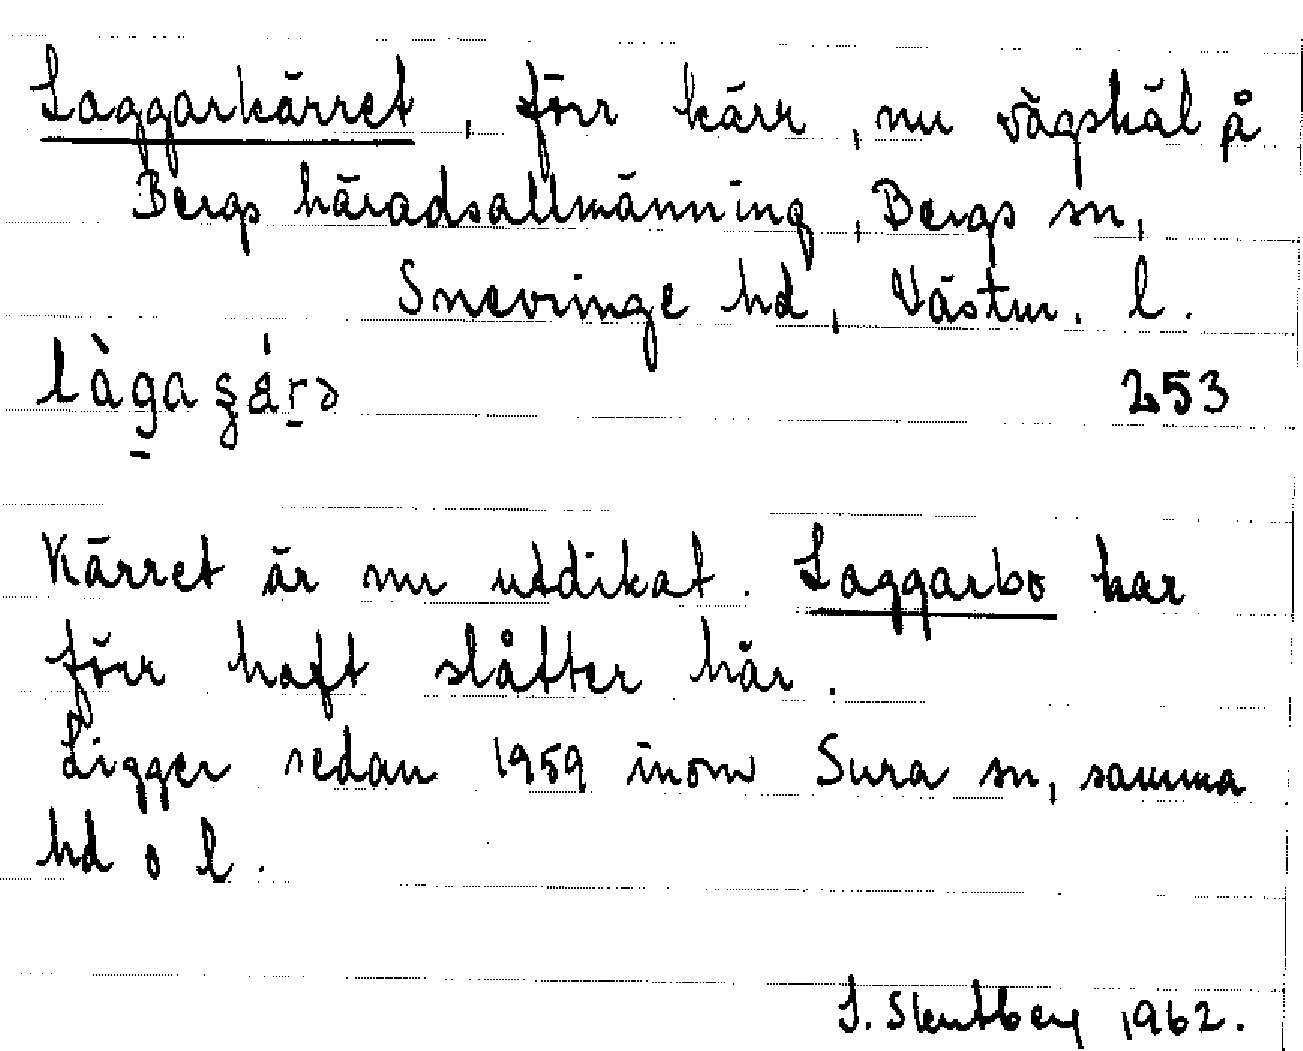 Laggarkärret, förr kärr, nu vägskäl å
Bergs häradsallmänning, Bergs sn,
Snevringe hd, Västm. l.
253
Kärret är nu utdikat. Laggarbo har
förr haft slåtter här.
Ligger sedan 1959 inom Sura sn, samma
hd o l.
S. Skutberg 1962.